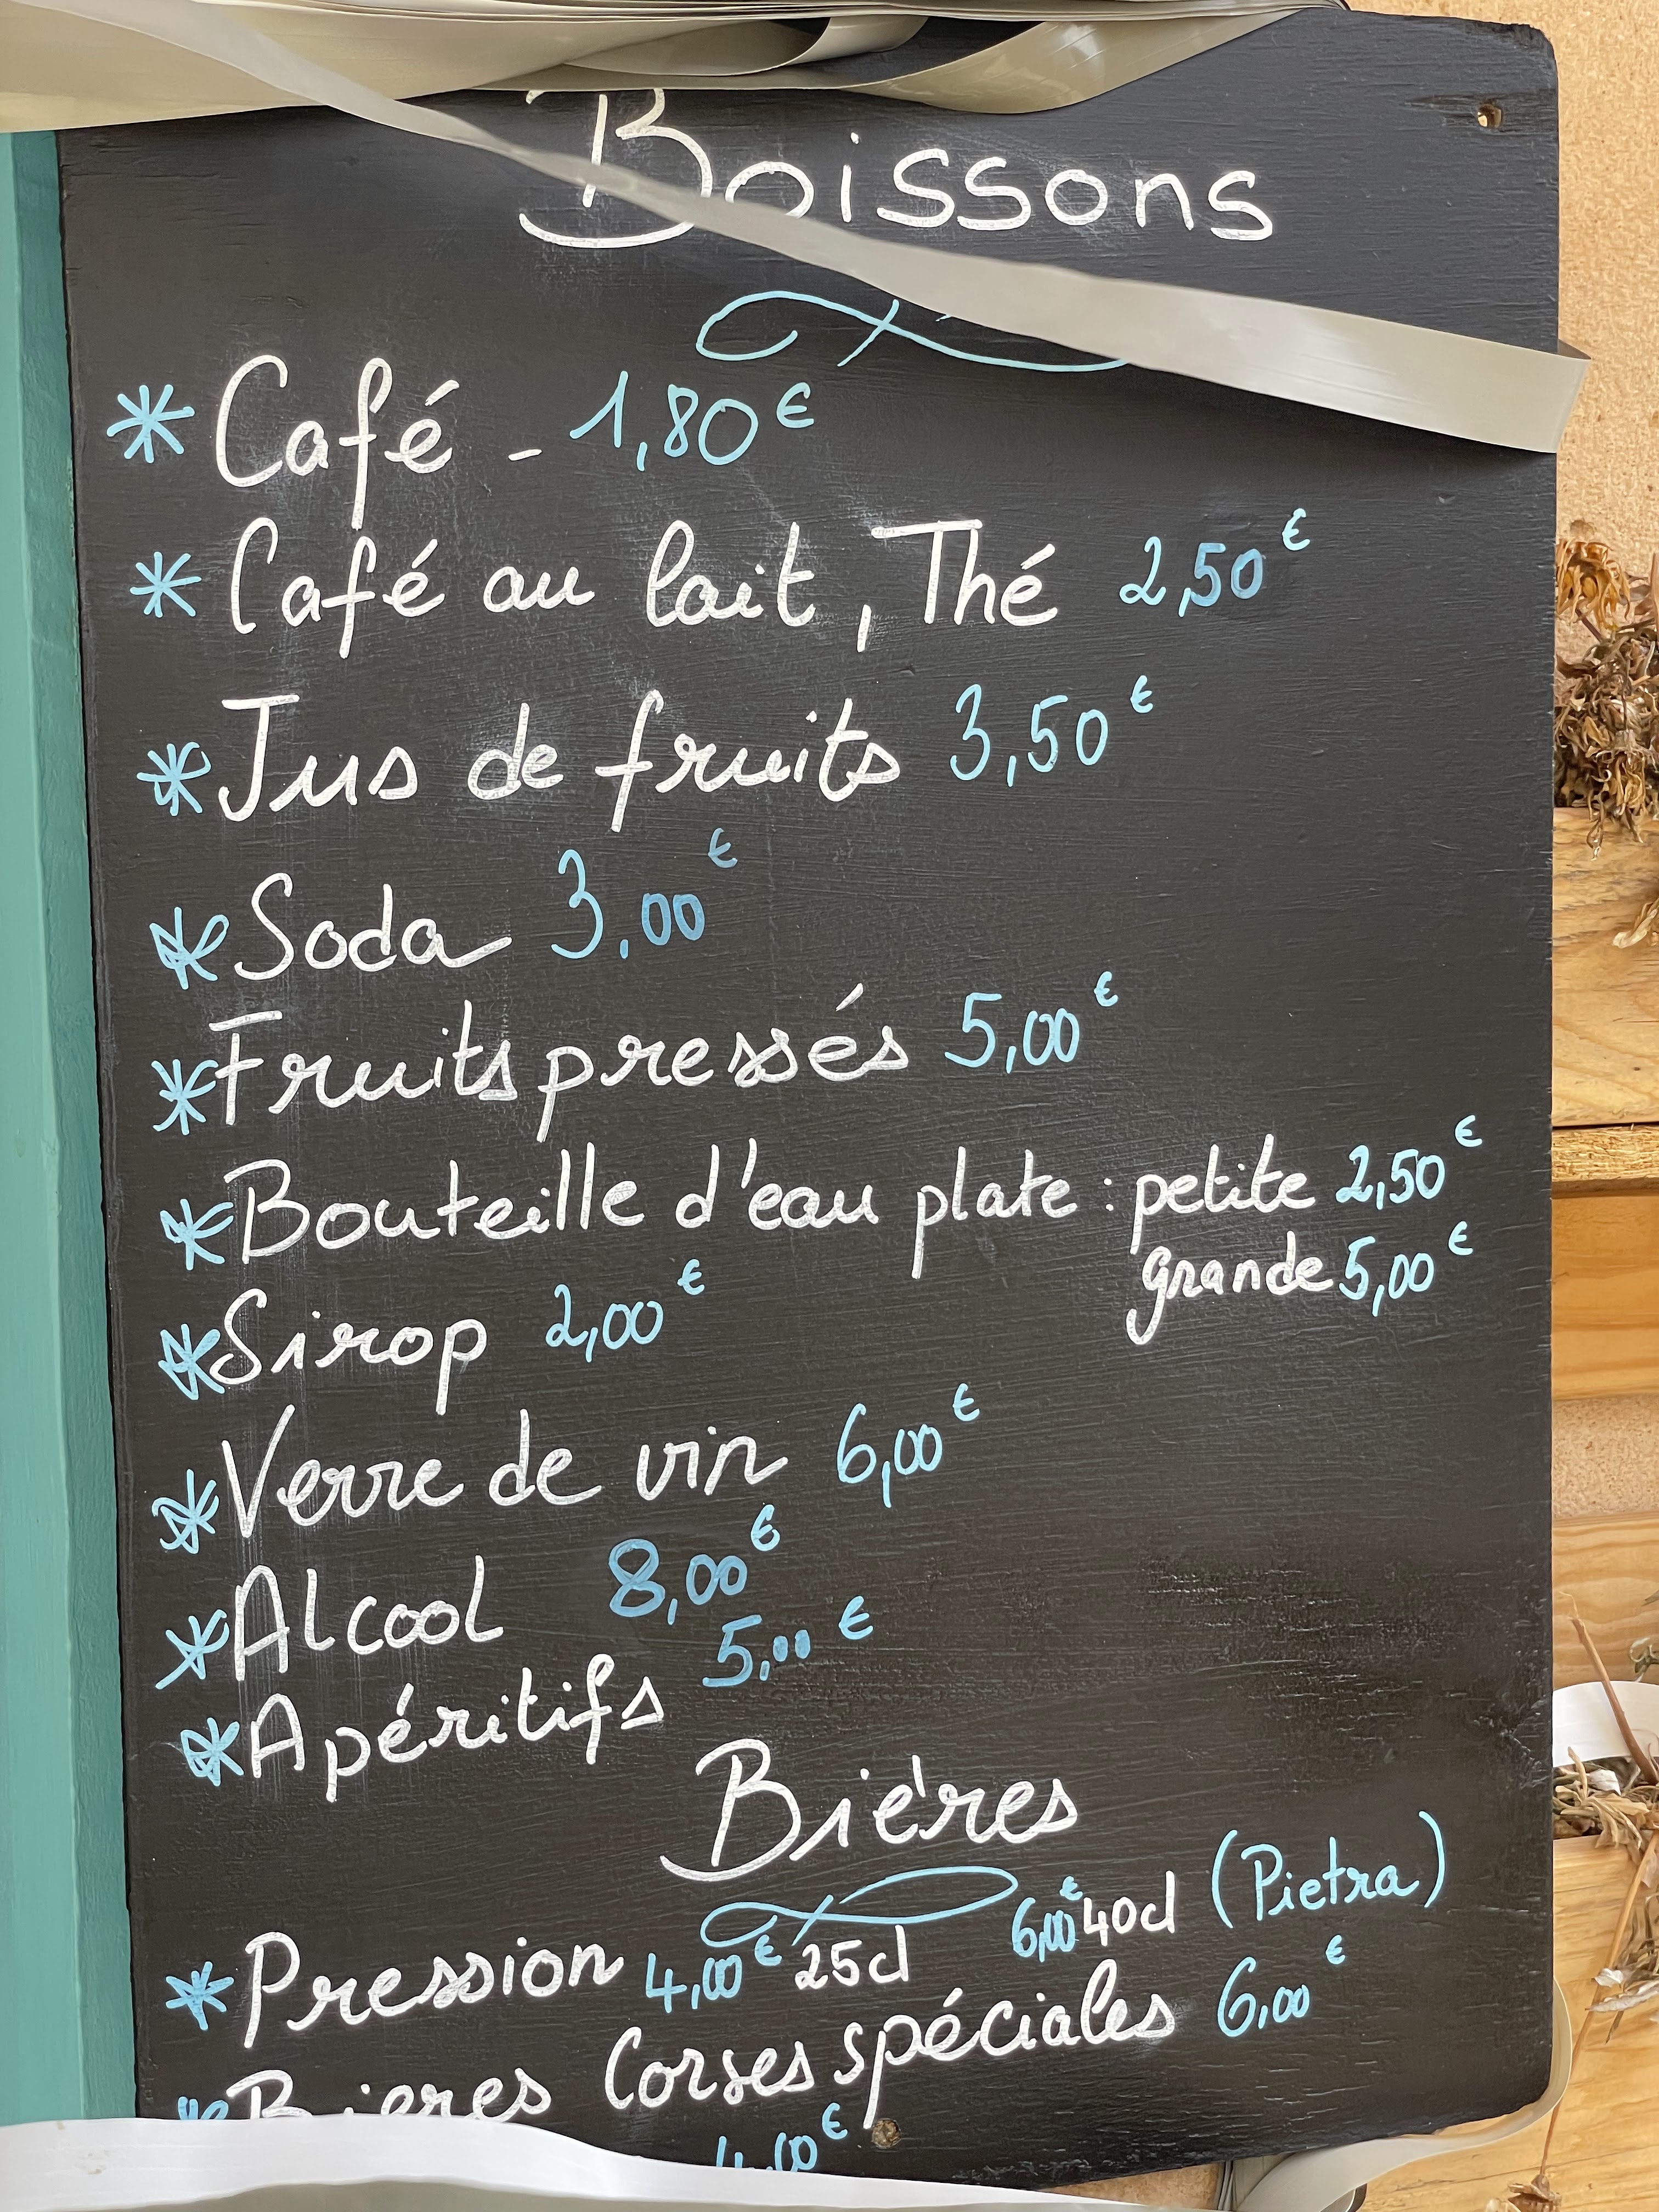 Boissons
* Café - 1,80€
* Café au lait, Thé 2,50€
* Jus de fruits 3,50€
* Soda 3,00€
* Fruits pressés 5,00€
* Bouteille d'eau plate : petite 2,50€
grande 5,00€
* Sirop 2,00€
* Verre de vin 6,00€
* Alcool 8,00€
* Apéritifs 5,00€
Bières
* Pression 4,00€ 25cl 6,00€ 40cl (Pietra)
* Bieres Corses spéciales 6,00€
4,00€